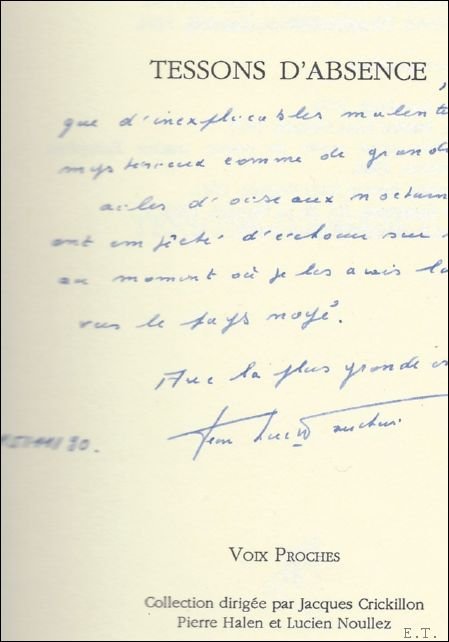 TESSONS D'ABSENCE,
que d'inexplicables malente
mystérieux comme de grande
ailes d'oiseaux nocturn
ont empêché d'échouer sur
au moment où je les avais la
vers le pays noyé.
Avec la plus grande
Jean
90.
VOIX PROCHES
Collection dirigée par Jacques Crickillon
Pierre Halen et Lucien Noullez
E.T.